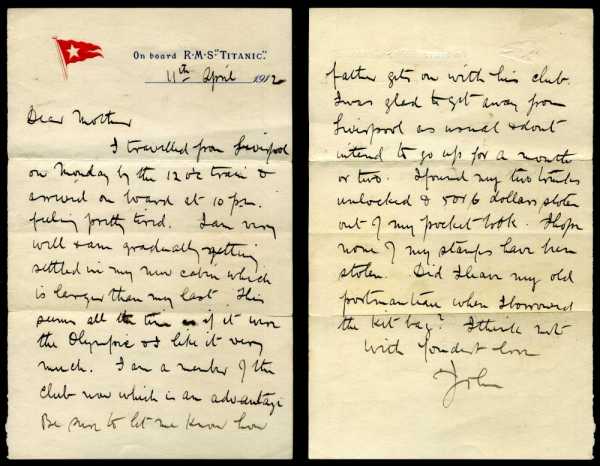 On board R·M·S·"TITANIC".
11th April 1912
Dear Mother
I travelled from Liverpool
on Monday by the 12 o'c train &
arrived on board at 10 p.m.
feeling pretty tired. I am very
well & am gradually getting
settled in my new cabin which
is larger than my last. This
seems all the time as if it were
the Olympic & I like it very
much. I am a member of the
club now which is an advantage
Be sure to let me know how
father gets on with his club.
I was glad to get away from
Liverpool as usual & dont
intend to go up for a month
or two. I found my two trunks
unlocked & 5 or 6 dollars stolen
out of my pocket book. I hope
none of my stamps have been
stolen. Did I leave my old
portmanteau when I borrowed
the kit bag? I think not
With fondest love
John